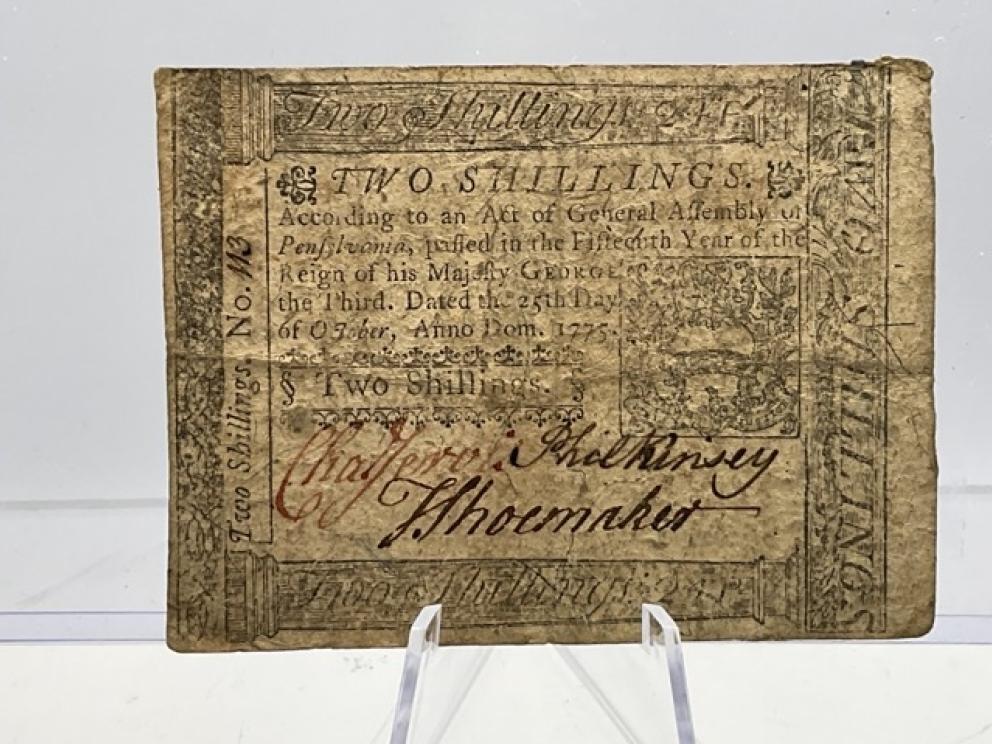 Two Shillings.
TWO SHILLINGS.
According to an Act of General Assembly of
Pensylvania, passed in the Fifteenth Year of the
Reign of his Majesty GEORGE
the Third. Dated the 25th Day
of October, Anno Dom. 1775.
§ Two Shillings. §
Phil Kinsey
J Shoemaker
Two Shillings. No. 113
Two Shillings.
TWO SHILLINGS